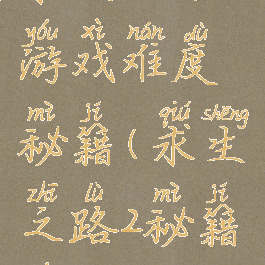 yóu xì nán dù
游戏难度
mì jí qiú shēng
秘籍(求生
zhī lù mì jí
之路2秘籍